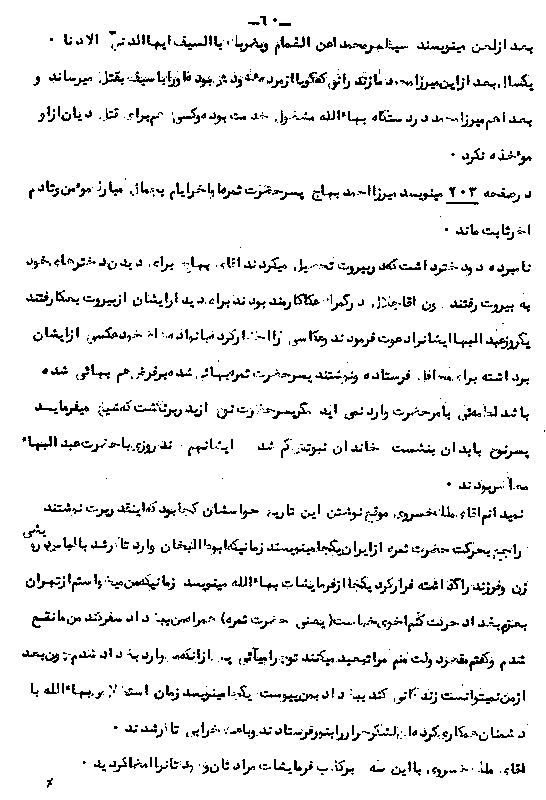 — ٦٠ —
بعد از لعن مینویسند سیظهر محمد اعن الشمام ویضربك بالسیف ایها الدنس الادنا ۰
یکسال بعد از این میرزا محمد مازندرانی که گویا از مردمه ودیز بود فاورا با سیف بقتل میرساند و
بعد اهم میرزا محمد در دستگاه بهاءالله مشغول خدمت بوده وکسی هم برای قتل دیان از او
موءخذه نکرد ۰
در صفحه ۲۰۳ مینویسد میرزا احمد بهاج پسر حضرت ثمره با خر ایام بجمال مبارك موءمن وتادم
اخر ثابت ماند ۰
نامبرده دو دختر داشت که در بیروت تحصیل میکردند اقای بهاج برای دیدن دخترهای خود
به بیروت رفتند اقا جلال در گمرك عکا کارمند بودند برای دیدار ایشان از بیروت بعکا رفتند
یکروز عبدالبها ایشانرا دعوت فرمودند وعکاسی را احضار کرد بخانواده خود عکسی از ایشان
برداشته برای محافل فرستاده ونوشتند پسر حضرت ثمره بهائی شده بر فرض هم بهائی شده
باشد لطمه ئی بامر حضرت وارد نمی اید مگر پسر حضرت نوح از پدر برنگشت که شیخ میفرماید
پسر نوح بابدان بنشست خاندان نبوتش گم شد ایشانهم چند روزی با حضرت عبدالبهاء
معاشر بودند ۰
نمیدانم اقای ملك خسروی موقع نوشتن این تاریخ حواسشان کجا بود که اینقدر پرت نوشتند
راجع بحرکت حضرت ثمره از ایران یکجا مینویسند زمانیکه ابوالبخان وارد تاکر شد بالباس درویشی
زن وفرزند را گذاشته فرار کرد یکجا از فرمایشات بهاءالله مینویسد زمانیکه من میخواستم از تهران
بعزم بغداد حرکت کنم اخوی خواست (یعنی حضرت ثمره) همراه من ببغداد سفر کند من مانع
شدم وگفتم مقصود دولت منم مرا تبعید میکنند تو چرا میآئی پس از انکه من وارد بغداد شدم چون بعد
از من نمیتوانست زندگانی کند ببغداد بمن پیوست یکجا مینویسد زمان استعلا بر بهاءالله با
دشمنان همکاری کرده این لشکر جرار را بنور فرستادند وباعث خرابی تاکر شدند ۰
اقای ملك خسروی با این سه برکذب فرمایشات مرادتان وخودتانرا امضا کردید ۰